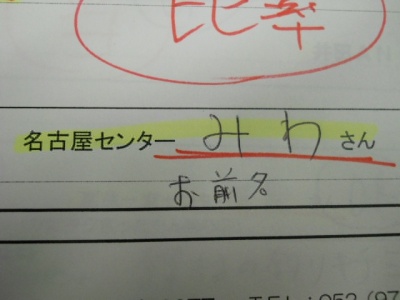 比率
名古屋センター みわ さん
お前名